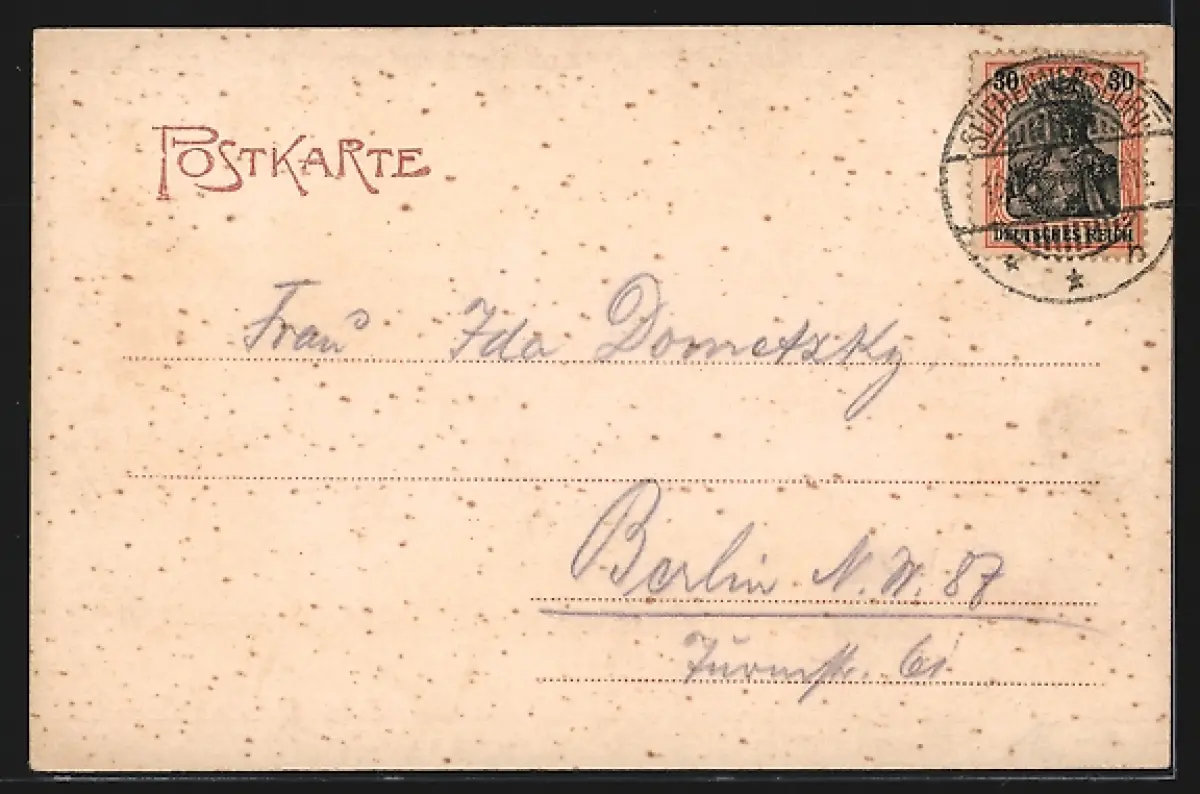 POSTKARTE
30 30
DEUTSCHES REICH
Frau Ida Dometzky
Berlin N.W. 87
Turmstr. 61